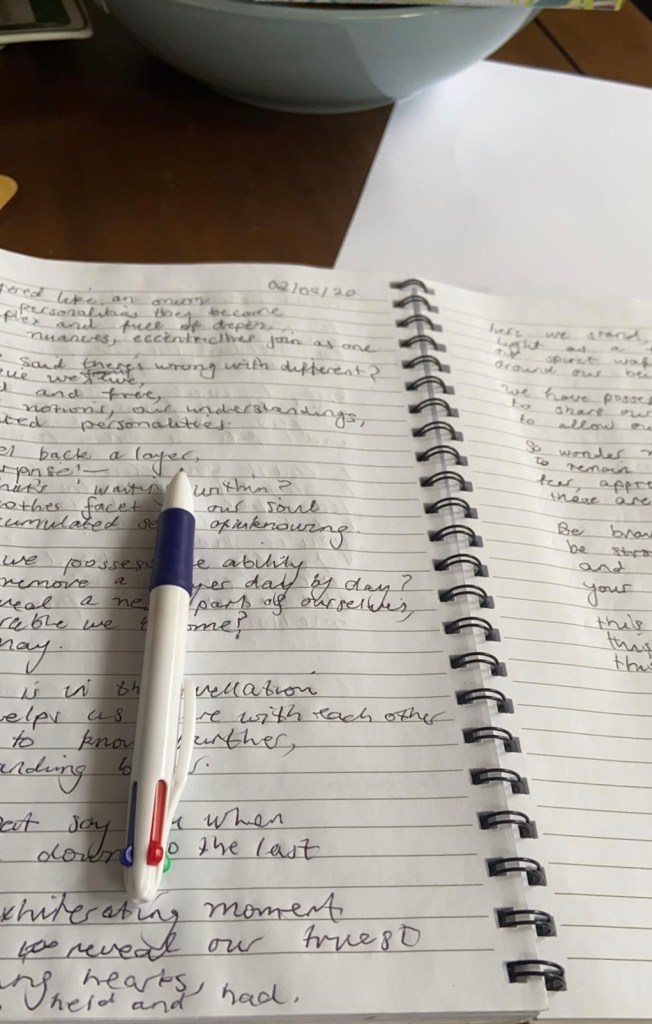 02/08/20
ered like an onion
personalities they become
plex and full of depth,
nuances, eccentricities join as one
said there's wrong with different?
we
and free,
notions, our understandings,
ted personalities.
back a layer,
rprise! —
hat's waiting within?
facet our soul
cumulated of unknowing.
we possess e ability
remove a yer day by day?
veal a ne part of ourselves,
rable we ome?
may.
is in th vellation
elps us re with each other
to know urther,
anding b s.
eat say u when
down o the last
xhilerating moment
reveal our truest
ing hearts,
held and had.
here we stand,
light as a
of spirit waf
around our be
We have posse
to share our
to allow ou
So wonder n
to remain
fear, appre
these are
Be brav
be stro
and
your
this
this
this